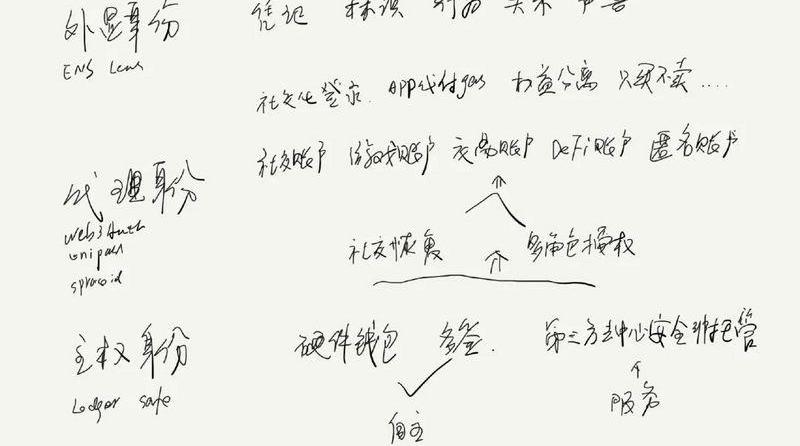 外显身份 凭记 标识 行为 关系 声誉
ENS Lens
社交化登录. APP代付gas 权益分离 只买不卖....
社交账户 游戏账户 交易账户 DeFi账户 匿名账户
代理身份
web3Auth
unipass
社交恢复 多角色授权
主权身份 硬件钱包 多签. 第三方去中心安全 托管
Ledger safe 服务
自主